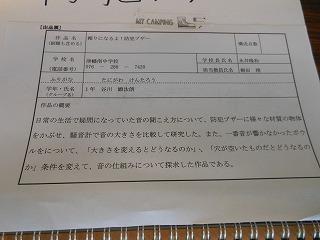 MY CAMPING
【出品票】
作品名
頼りになるよ!防犯ブザー
学校名
津幡南中学校
学校長氏名
(電話番号)
076 - 288 - 7420
ふりがな
たにがわ けんたろう
学年・氏名
1年 谷川
作品の概要
日常の生活で疑問になっていた音の聞こえ方について、防犯ブザーに様々な材質の物体
をかぶせ、騒音計で音の大きさを比較して研究した。また、一番音が響かなかったボウ
ルをについて、「大きさを変えるとどうなるのか」、「穴が空いたものだとどうなるの
か」条件を変えて、音の仕組みについて探求した作品である。